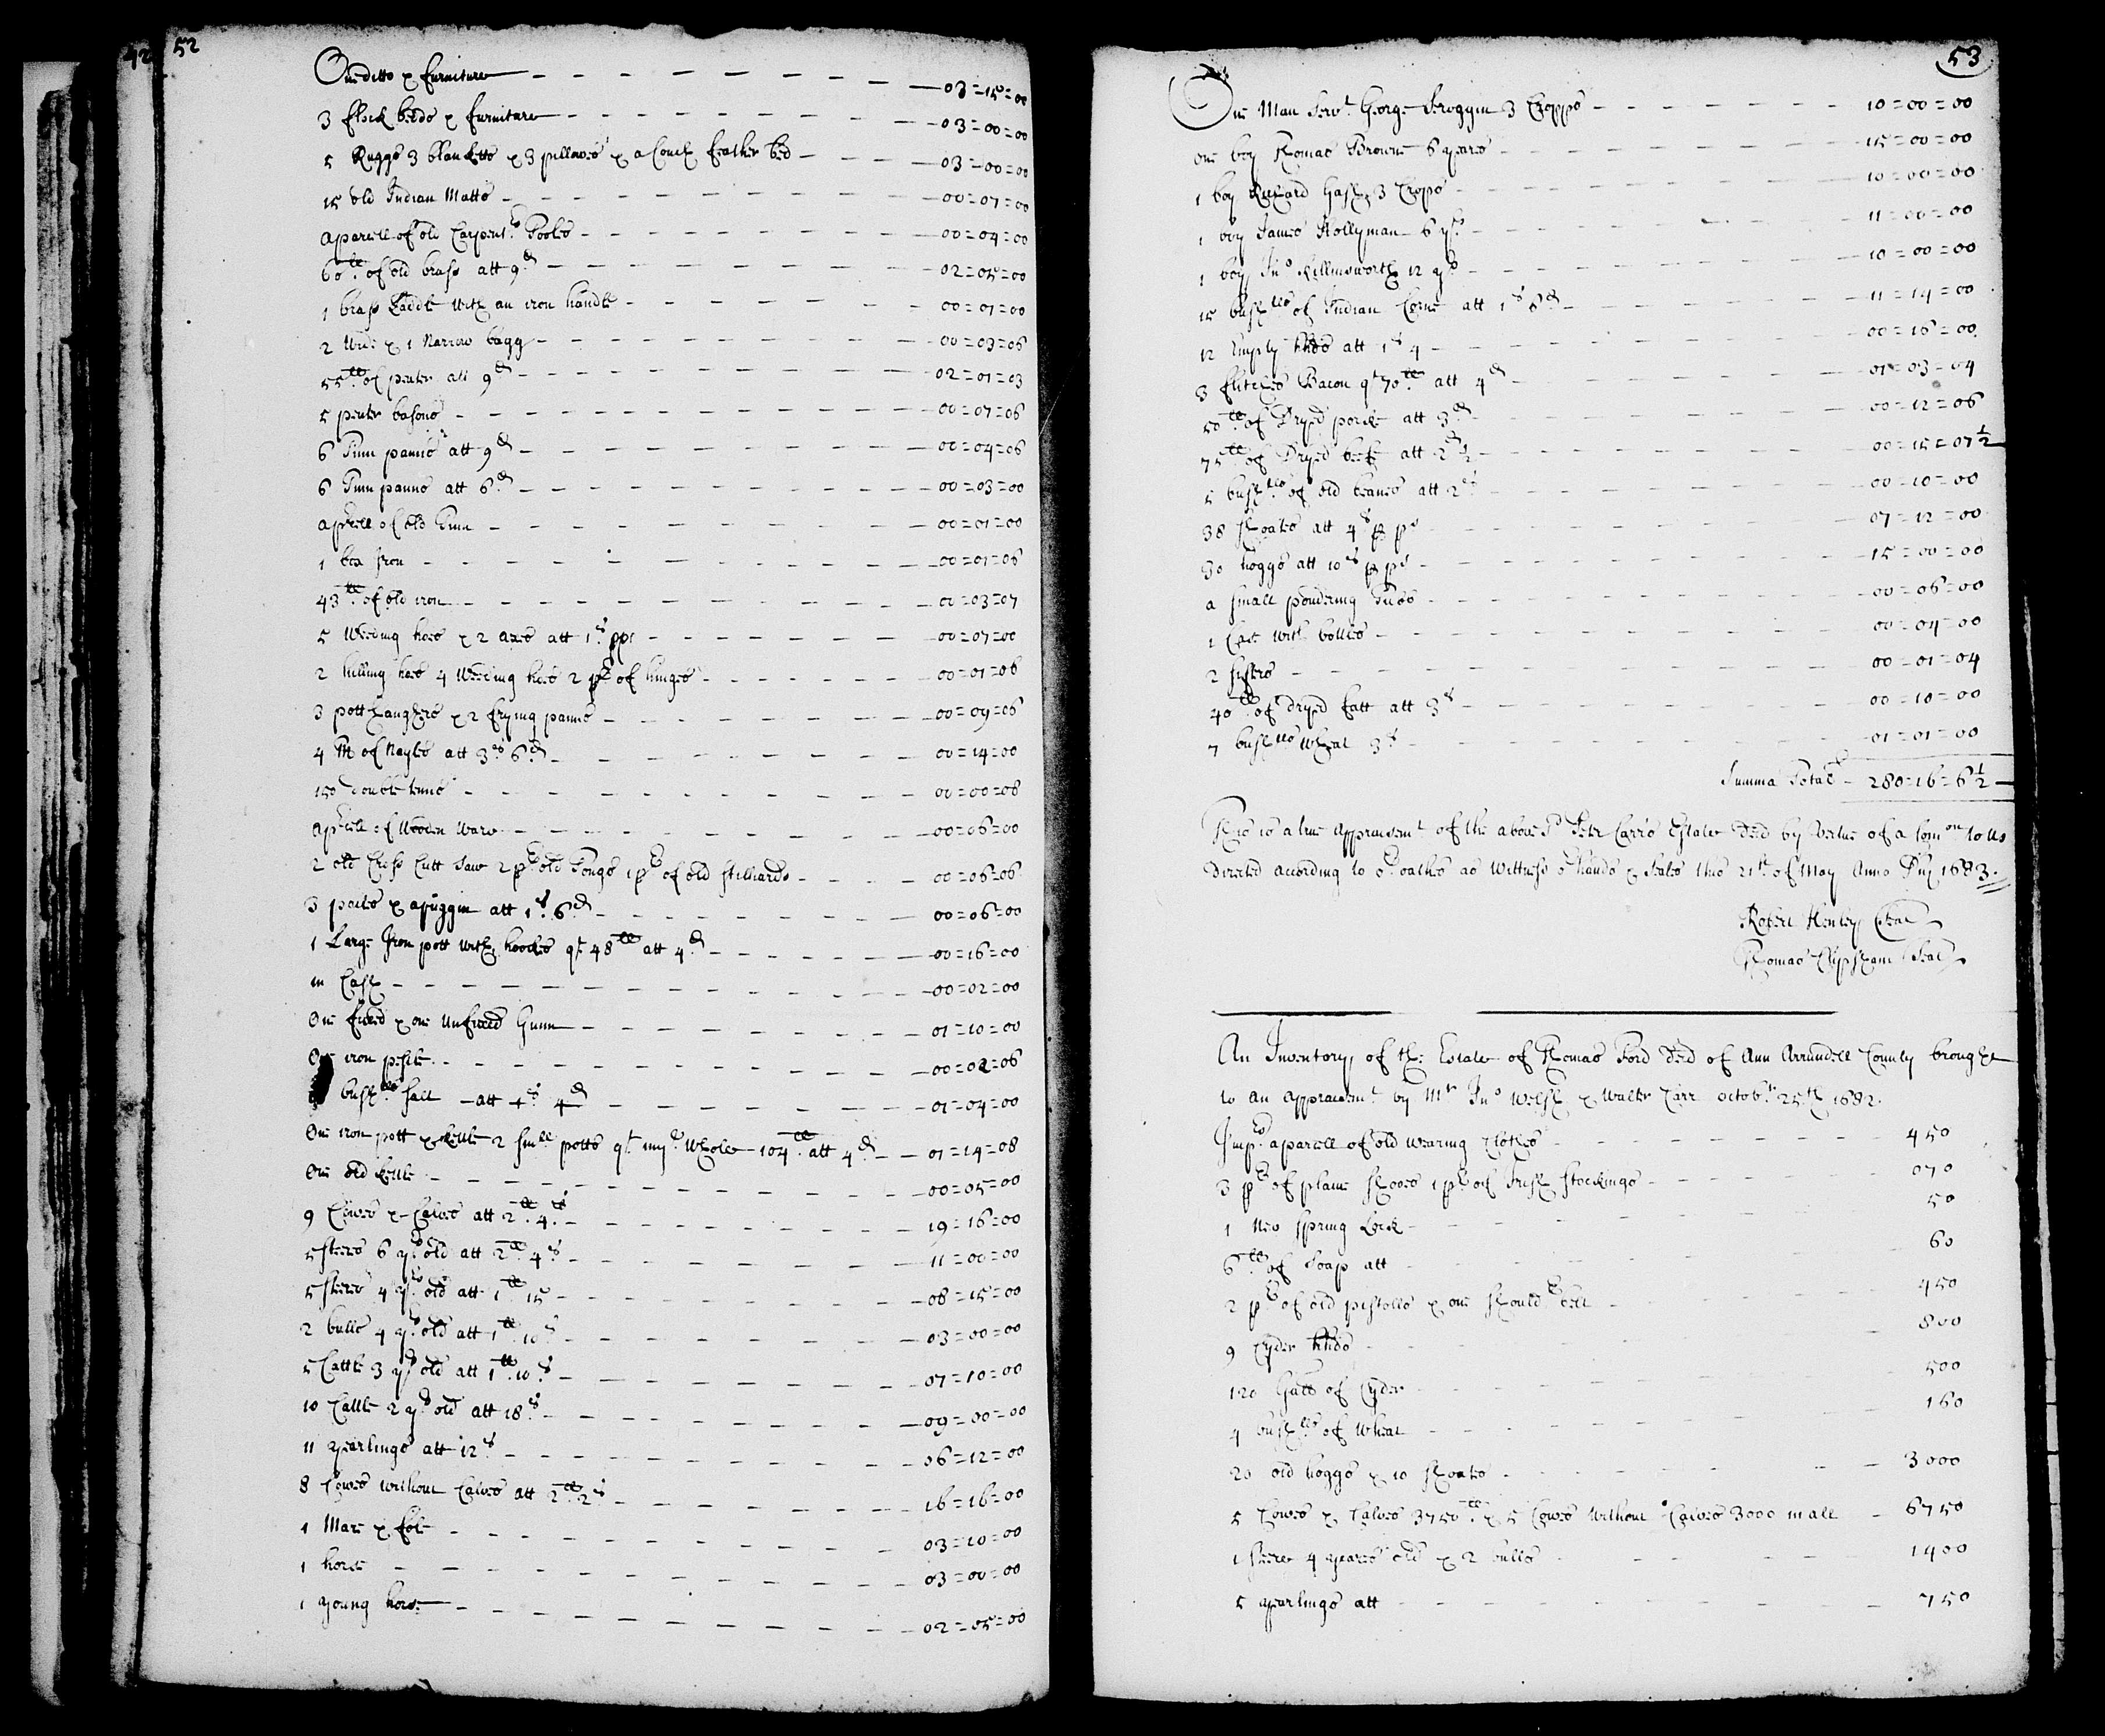 42 52
One ditto & furniture 03=15=00
3 flock beds & furniture 03=00=00
5 Ruggs 3 blanketts & 3 pillowes & a Couch feather bed 03=00=00
15 old Indian Matts 00=07=00
a parcell of old Carpentrs Tooles 00=04=00
60 lb of old brass att 9d 02=05=00
1 brass Ladle with an iron handle 00=01=00
2 wide & 1 Narrow bagg 00=03=06
55 lb of pewter att 9d 02=01=03
5 pewter basons 00=07=06
6 Tinn panns att 9d 00=04=06
6 Tinn panns att 6d 00=03=00
a prcell of old Tinn 00=01=00
1 box Iron 00=01=06
43 lb of old iron 00=03=07
5 Weeding hoes & 2 axes att 1s pps 00=07=00
2 hilling hoes 4 Weeding hoes 2 pr of hinges 00=01=06
3 pott hangers & 2 frying panns 00=09=06
4 M of Nayles att 3s 6d 00=14=00
150 double tenns 00=00=08
a prcell of Wooden Ware 00=06=00
2 old Cross Cutt Saw 2 pr old Tongs 1 pr of old stilliards 00=06=06
3 pailes & a piggin att 1s 6d 00=06=00
1 Large Iron pott with hookes qt 48 lb att 4d 00=16=00
in Cash 00=02=00
One fixed & one Unfixed Gunn 01=10=00
One iron pestle 00=02=06
bushlls salt att 4s 4d 01=04=00
One iron pott & kettle 2 smll potts qt in ye Whole 104 lb att 4d 01=14=08
One old kettle 00=05=00
9 Cowes & Calves att 2 lb 4s 19=16=00
5 steers 6 yrs old att 2 lb 4s 11=00=00
5 steers 4 yrs old att 1 lb 15 08=15=00
2 bulls 4 yrs old att 1 lb 10s 03=00=00
5 Cattle 3 yrs old att 1 lb 10s 07=10=00
10 Cattle 2 yrs old att 18s 09=00=00
11 yearlings att 12s 06=12=00
8 Cowes without Calves att 2 lb 2s 16=16=00
1 Mare & fole 03=10=00
1 horse 03=00=00
1 young horse 02=05=00
53
One Man Servt George Scroggin 3 Cropps 10=00=00
one boy Thomas Browne 6 yeares 15=00=00
1 boy Richard Gash 3 Crops 10=00=00
1 boy James Hollyman 6 yrs 11=00=00
1 boy Jno Killinsworth 12 yrs 10=00=00
15 bushlls of Indian Corne att 1s 6d 11=14=00
12 Empty hhds att 1s 4 00=16=00
3 flitches Bacon qt 70 lb att 4d 01=03=04
50 lb of Dryed porke att 3d 00=12=06
75 lb of Dryed beefe att 2d ½ 00=15=07½
5 bushlls of old beanes att 2s 00=10=00
38 shoates att 4s p ps 07=12=00
30 hoggs att 10s p ps 15=00=00
a small poudering Tubb 00=06=00
1 Case with bottles 00=04=00
2 sifters 00=01=04
40 lb of dryed fatt att 3d 00=10=00
7 bushlls Wheat 3s 01=01=00
Summa Totall 280=16=6½
This is a true Appraisemt of the above sd Petr Carrs Estate Decd by Vertue of a Comon to us
Directed according to or oathes as Wittness or hands & seales this 21th of May Anno Dni 1683.
Robert Henley Seal
Thomas Clipsham Seal
An Inventory of the Estate of Thomas Ford Decd of Ann Arrundell County brought
to an Appraismt by Mr Jno Welsh & Walter Carr octobr 25th 1682.
Imprs a parcell of old wearing Clothes 450
3 pr of plaine shooes 1 pr of Irish stockings 070
1 New spring Lock 50
6 lb of Soap att 60
2 pr of old pistolls & one shouldr belt 450
9 Cyder hhds 800
120 Galls of Cyder 500
4 bushlls of Wheat 160
20 old hoggs & 10 shoates 3000
5 Cowes & Calves 3750 lb & 5 Cowes without Calves 3000 in all 6750
1 steere 4 yeares old & 2 bulls 1400
5 yearlings att 750